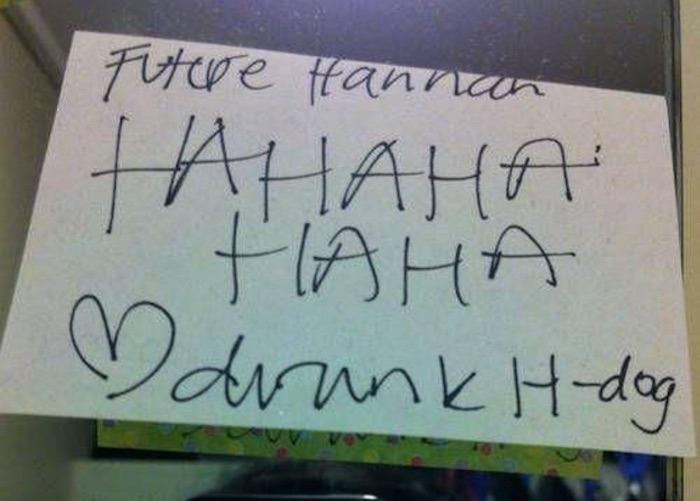 Future Hannah
HAHAHA
HAHA
♡ drunk H-dog